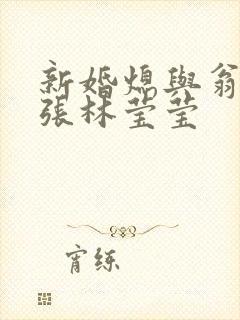 新婚熄與翁
張林莹莹
宵练